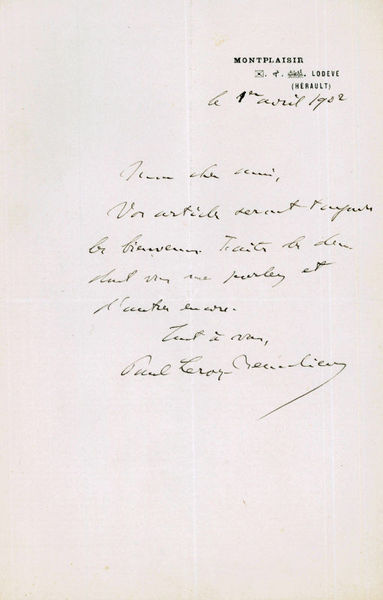 MONTPLAISIR
LODEVE
(HÉRAULT)
le 1er avril 1902
Mon cher ami,
Vos articles seront toujours
les bienvenus. Traitez les deux
dont vous me parlez et
d'autres encore.
Tout à vous,
Paul Leroy-Beaulieu